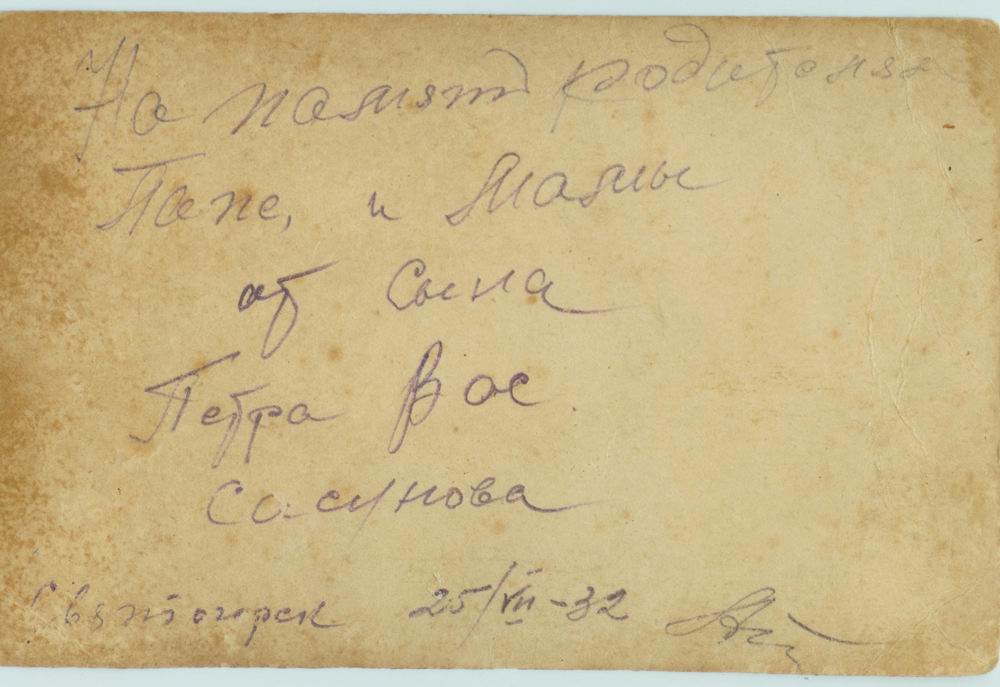 На памят родителям
Папе, и Мамы
от Сына
Петра Вас
Сасунова
Святогорск 25/VII-32